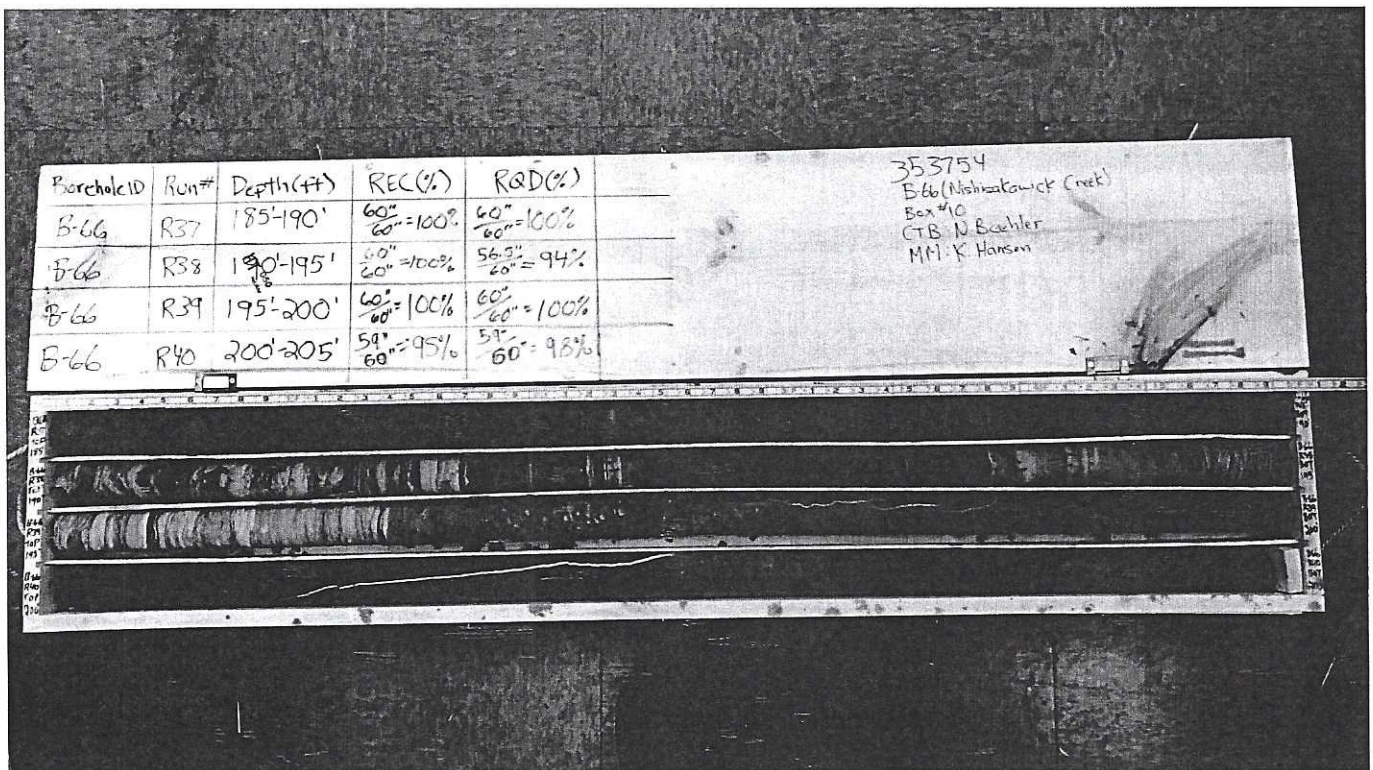 Borehole ID Run# Depth(ft) REC(%) RQD(%)
B-66 R37 185'-190' 60"/60"=100% 60"/60"=100%
B-66 R38 190'-195' 60"/60"=100% 56.5"/60"=94%
B-66 R39 195'-200' 60"/60"=100% 60"/60"=100%
B-66 R40 200'-205' 59"/60"=95% 59"/60"=98%
353754
B-66 (Nishisakawick Creek)
Box #10
CTB N Buehler
MM. K Hanson
TOP
185
B-66
R38
TOP
190
B-66
R39
TOP
195
B-66
R40
TOP
200